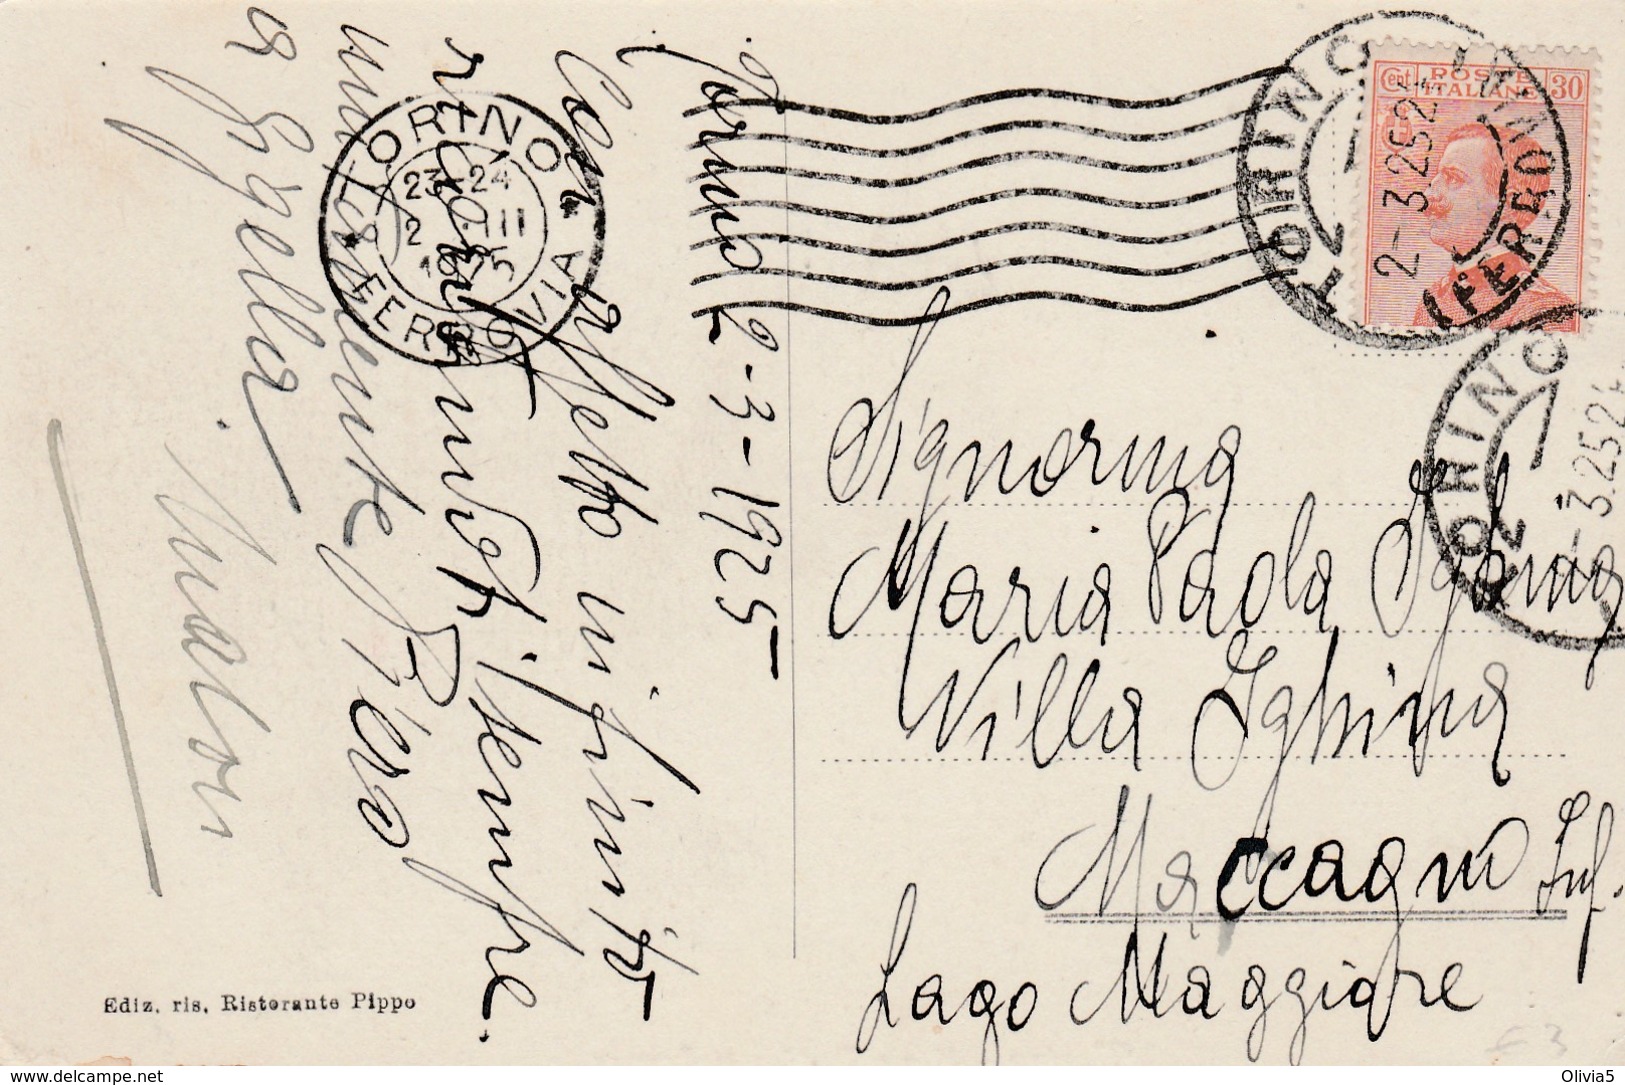 Torino 2-3-1925
Con affetto infinito
ricordandoti sempre
unitamente Piero
a Gigella
Signorina
Maria Paola
Villa Ighina
Maccagno Inf.
Lago Maggiore
POSTE
ITALIANE
Cent 30
TORINO
(FERROVIA)
2-3.25 2
TORINO
2-3.25 2
TORINO
23-24
2 III
1925
FERROVIA
Ediz. ris. Ristorante Pippo
€ 3
www.delcampe.net
Olivia5